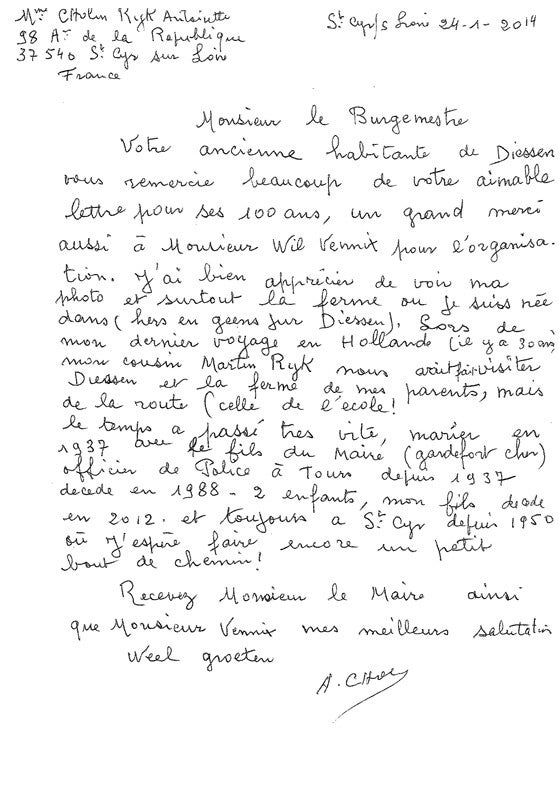 Mme CHolin Ryk Antoinette
St Cyr/s Loire 24-1-2014
98 Av de la Republique
37540 St Cyr sur Loire
France
Monsieur le Burgemestre
Votre ancienne habitante de Diessen
vous remercie beaucoup de votre aimable
lettre pour ses 100 ans, un grand merci
aussi à Monsieur Wil Vennix pour l'organisa-
tion. J'ai bien apprécier de voir ma
photo et surtout la ferme ou je suis née
dans ( en Diessen). Lors de
mon dernier voyage en Hollande (il y a 30 ans)
mon cousin Martin Ryk nous avait fait visiter
Diessen et la ferme de mes parents, mais
de la route (celle de l'ecole!
le temps a passé tres vite, marier en
1937 avec le fils du Maire (
officier de Police à Tours depuis 1937
decede en 1988 - 2 enfants, mon fils decede
en 2012. et toujours a St Cyr depuis 1950
où j'espère faire encore un petit
bout de chemin!
Recevez Monsieur le Maire ainsi
que Monsieur Vennix mes meilleurs salutation
Weel groeten
A. CHol